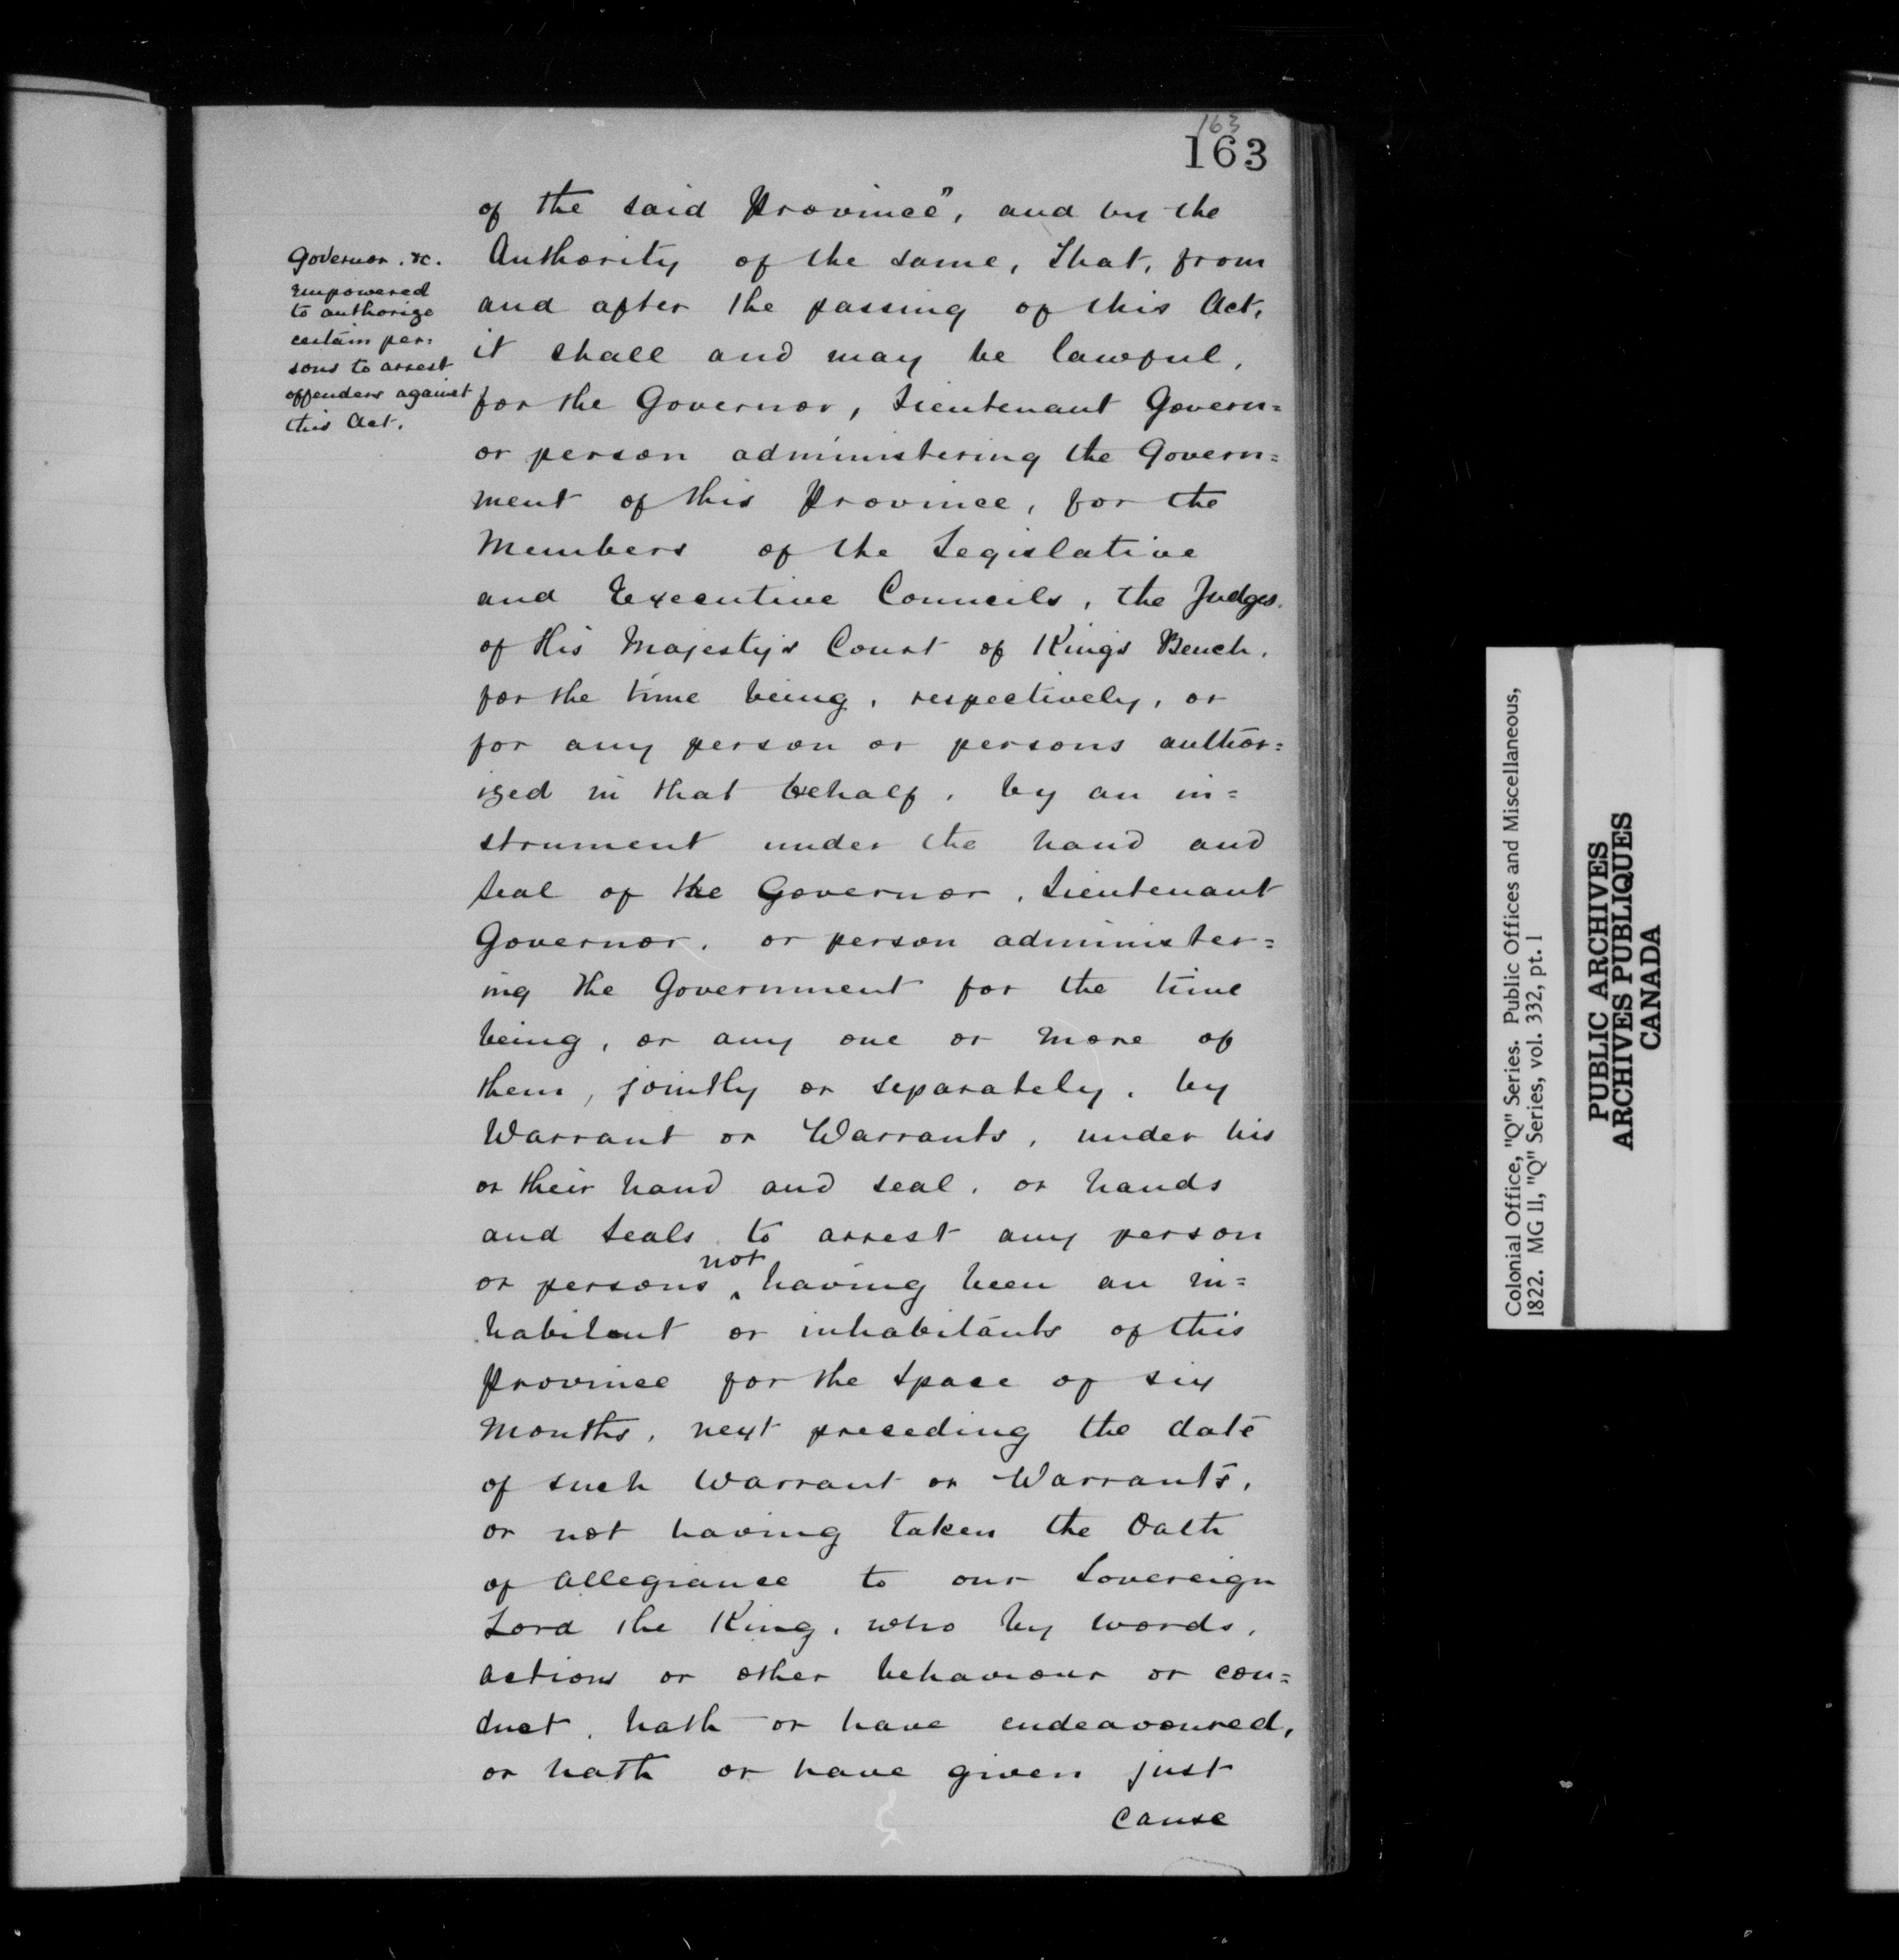 163
163
of the said Province", and by the
Governor. &c.
empowered
to authorize
certain per=
sons to arrest
offenders against
this Act.
Authority of the same, That, from
and after the passing of this Act,
it shall and may be lawful,
for the Governor, Lieutenant Govern=
or person administering the Govern=
ment of this Province, for the
Members of the Legislative
and Executive Councils, the Judges.
of His Majesty's Court of King's Bench.
for the time being, respectively, or
for any person or persons author=
ized in that behalf, by an in=
strument under the hand and
Seal of the Governor, Lieutenant
Governor, or person administer=
ing the Government for the time
being, or any one or more of
them, jointly or separately, by
Warrant or Warrants, under his
or their hand and seal, or hands
and Seals to arrest any person
or persons ‸not having been an in=
habitant or inhabitants of this
Province for the Space of six
Months, next preceding the date
of such Warrant or Warrants,
or not having taken the Oath
of Allegiance to our Sovereign
Lord the King, who by words,
actions or other behaviour or con=
duct, hath or have endeavoured,
or hath or have given just
cause
Colonial Office, "Q" Series. Public Offices and Miscellaneous,
1822. MG 11, "Q" Series, vol. 332, pt. 1
PUBLIC ARCHIVES
ARCHIVES PUBLIQUES
CANADA